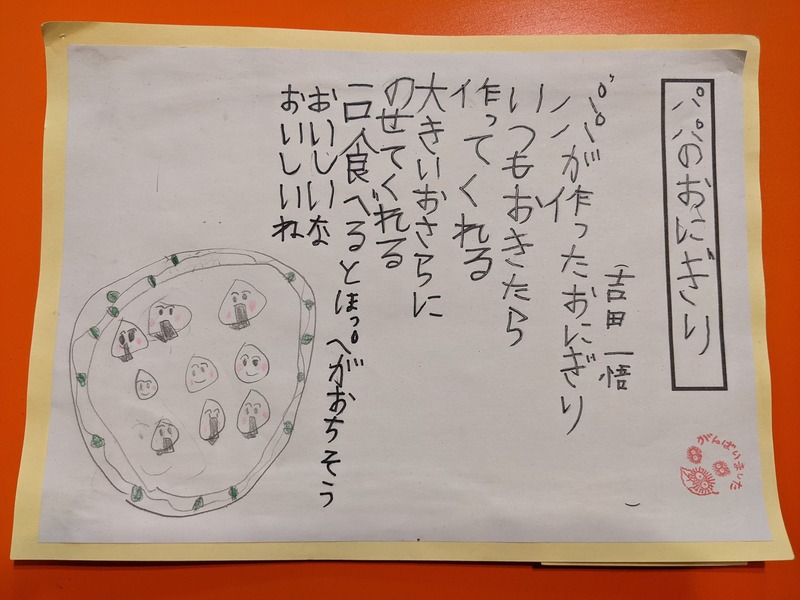 パパのおにぎり
（吉田 一悟）
パパが作ったおにぎり
いつもおきたら
作ってくれる
大きいおさらに
のせてくれる
一口食べるとほっぺがおちそう
おいしいな
おいしいね
がんばりました